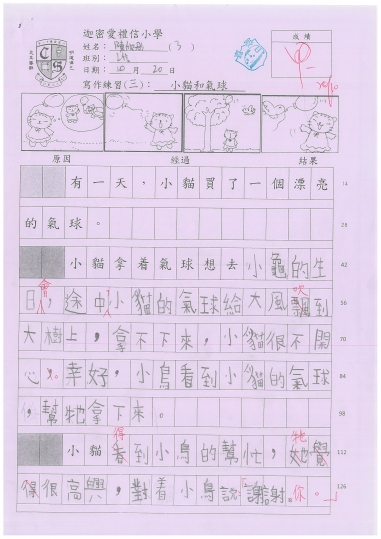 迦密愛禮信小學
成績
姓名：
(3)
班別：
日期：10月20日
寫作練習(三)： 小貓和氣球
原因 經過 結果
有一天，小貓買了一個漂亮 14
的氣球。 28
小貓拿着氣球想去小龜的生 42
會 吹
日，途中小貓的氣球給大風飄到 56
大樹上，拿不下來，小貓很不開 70
心。幸好，小鳥看到小貓的氣球 84
，幫牠拿下來。 98
得 牠
小貓看到小鳥的幫忙，她覺 112
得很高興，對着小鳥說「謝謝你。」 126